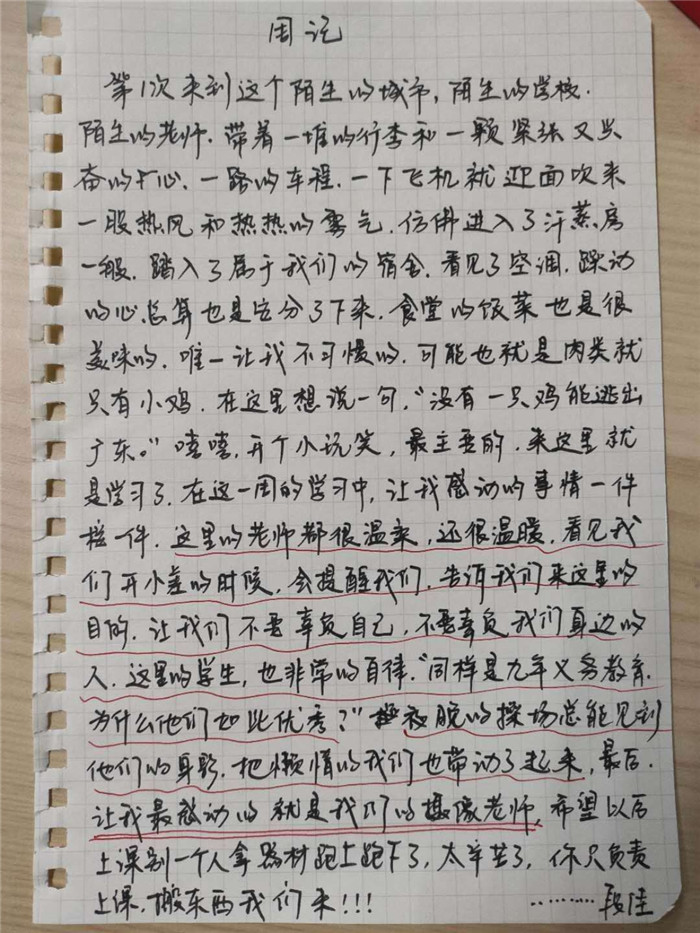 周记
第1次来到这个陌生的城市，陌生的学校.
陌生的老师.带着一堆的行李和一颗紧张又兴
奋的小心.一路的车程.一下飞机就迎面吹来
一股热风和热热的雾气.仿佛进入了汗蒸房
一般.踏入了属于我们的宿舍.看见了空调.躁动
的心总算也是安分了下来.食堂的饭菜也是很
美味的.唯一让我不习惯的.可能也就是肉类就
只有小鸡.在这里想说一句，“没有一只鸡能逃出
广东。”嘻嘻.开个小玩笑，最主要的.来这里就
是学习了.在这一周的学习中，让我感动的事情一件
接一件.这里的老师都很温柔，还很温暖.看见我
们开小差的时候.会提醒我们.告诉我们来这里的
目的.让我们不要辜负自己.不要辜负我们身边的
人.这里的学生，也非常的自律.“同样是九年义务教育.
为什么他们如此优秀？”夜晚的操场总能见到
他们的身影.把懒惰的我们也带动了起来，最后.
让我最感动的就是我们的摄像老师.希望以后
上课别一个人拿器材跑上跑下了，太辛苦了，你只负责
上课.搬东西我们来!!!
………段佳